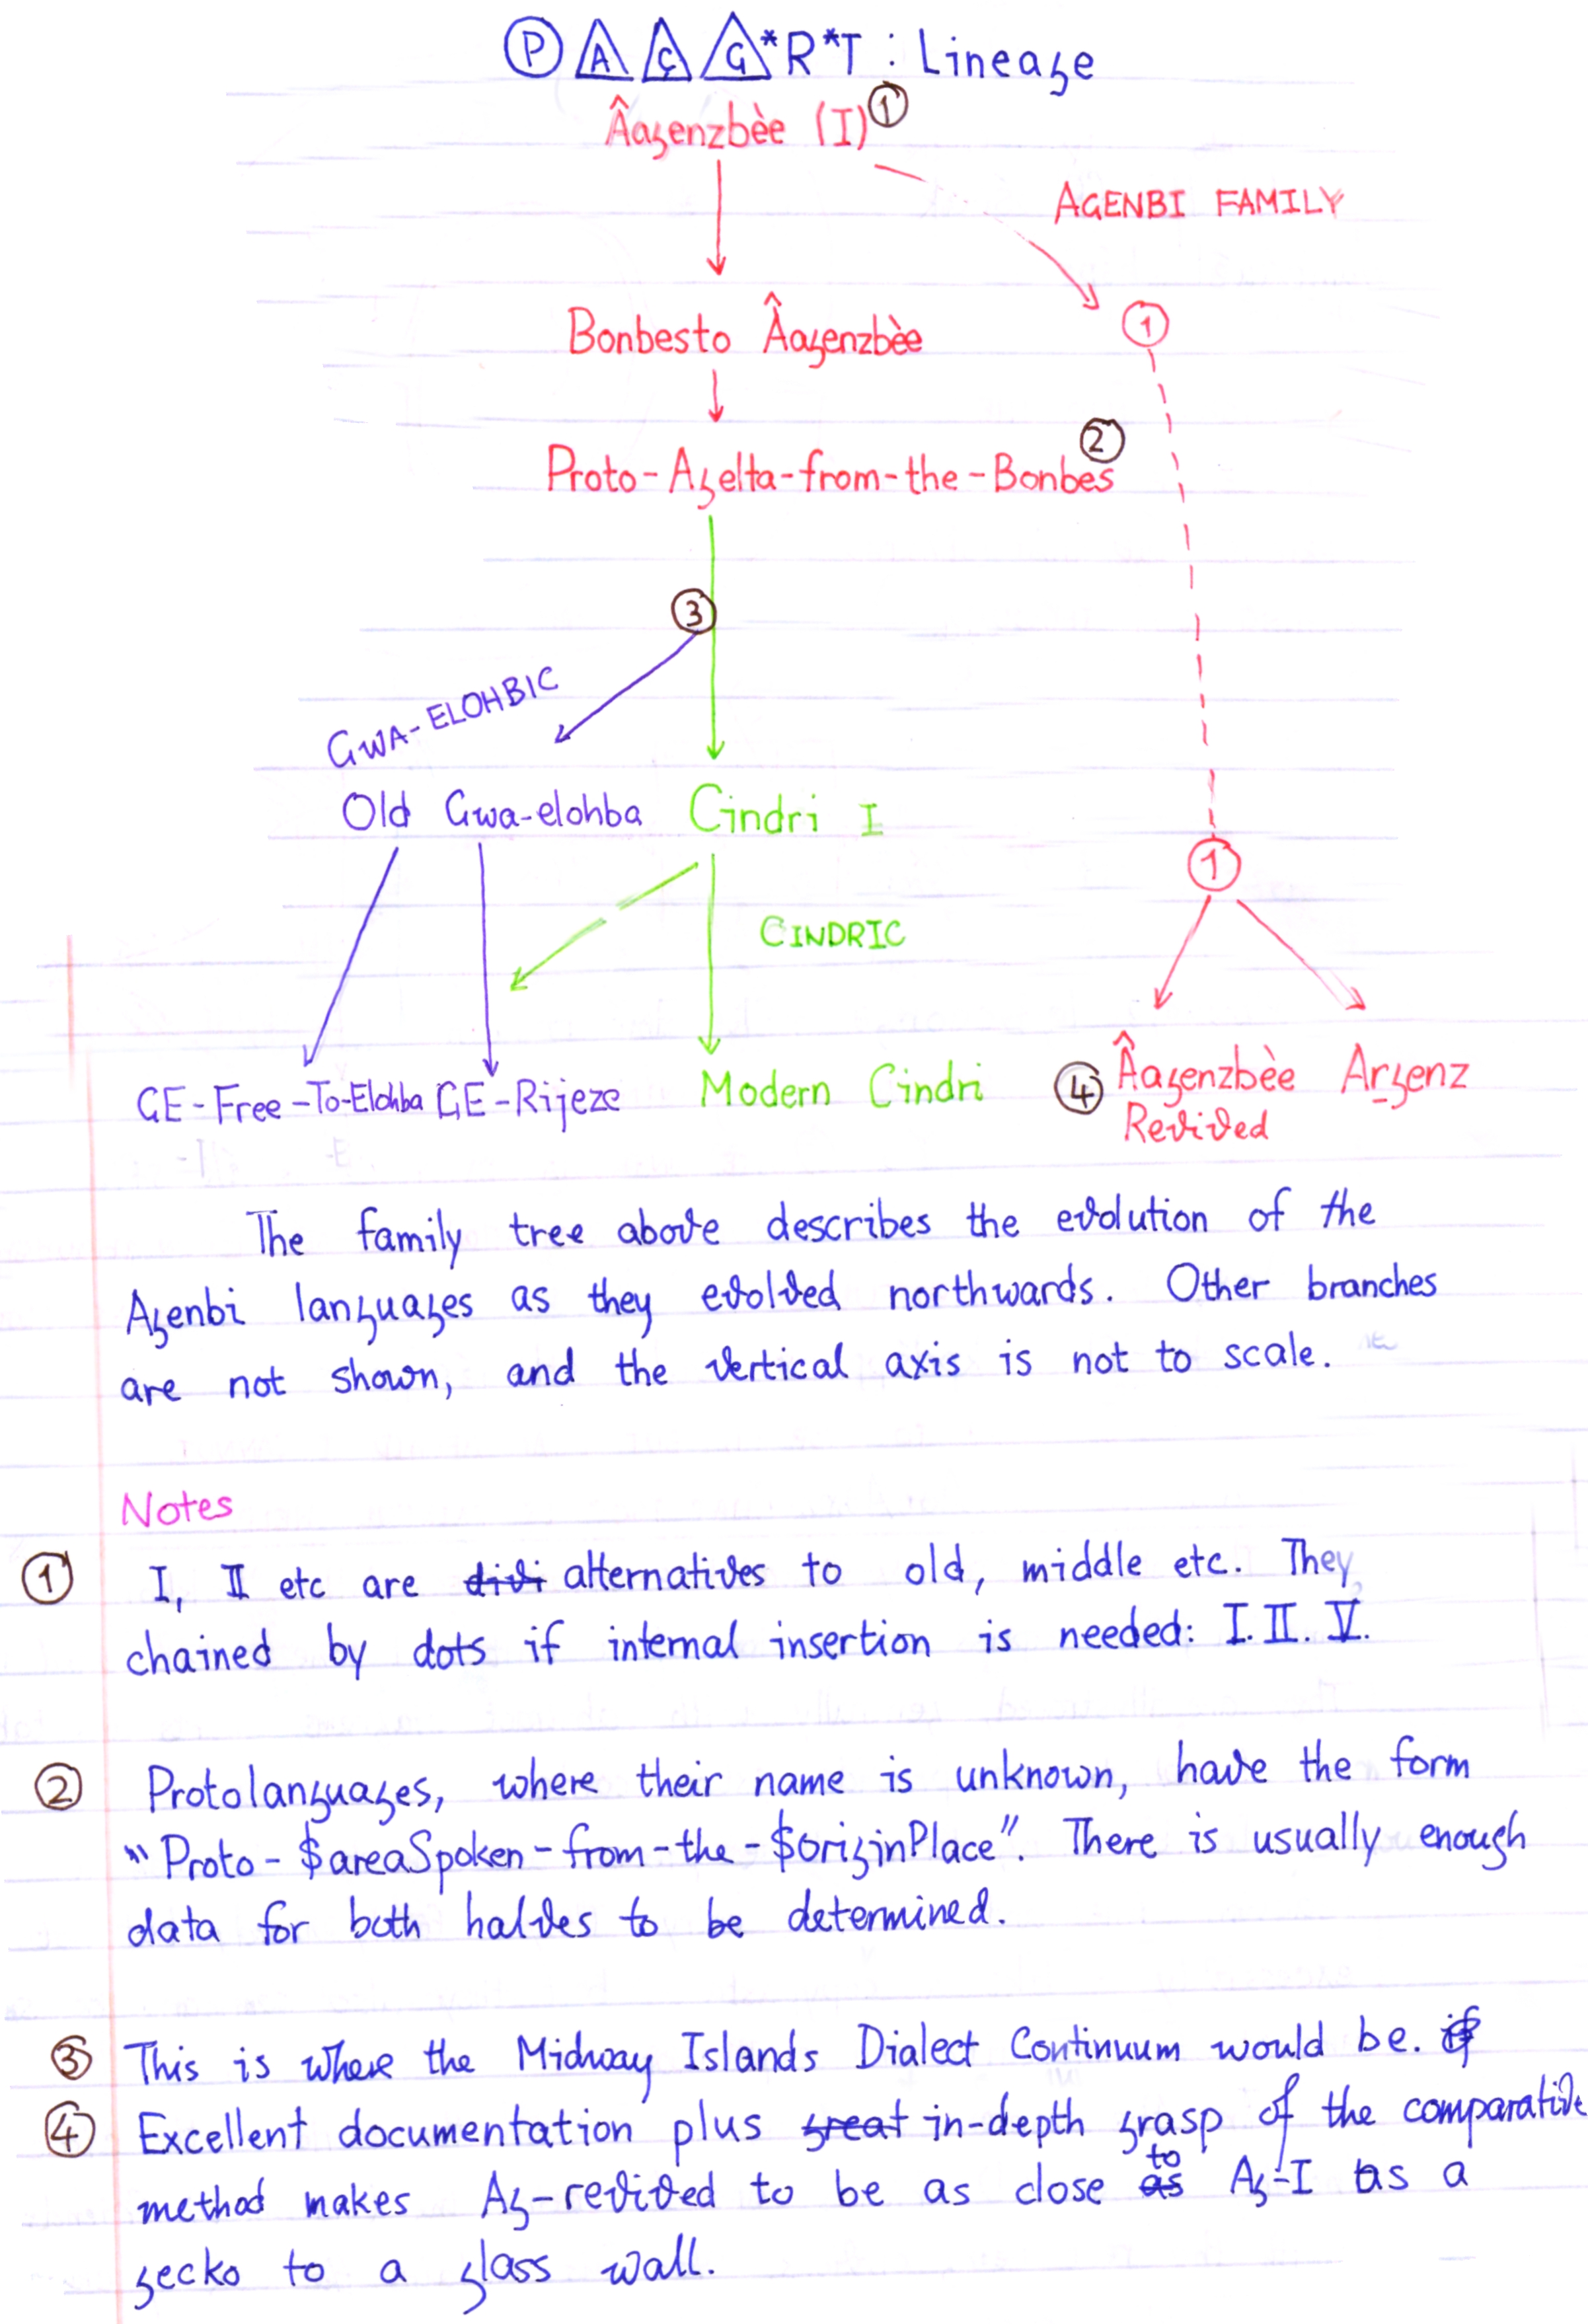 P A Ç G*R*T : Lineage
Âagenzbèe (I) ①
AGENBI FAMILY
Bonbesto Âagenzbèe
①
②
Proto-Agelta-from-the-Bonbes
③
GWA-ELOHBIC
Old Gwa-elohba Cindri I
①
CINDRIC
GE-Free-To-Elohba GE-Rijeze Modern Cindri ④ Âagenzbèe Argenz
Revived
The family tree above describes the evolution of the
Agenbi languages as they evolved northwards. Other branches
are not shown, and the vertical axis is not to scale.
Notes
① I, II etc are divi alternatives to old, middle etc. They
chained by dots if internal insertion is needed: I.II.V.
② Protolanguages, where their name is unknown, have the form
"Proto-$areaSpoken-from-the-$originPlace". There is usually enough
data for both halves to be determined.
③ This is where the Midway Islands Dialect Continuum would be. if
④ Excellent documentation plus great in-depth grasp of the comparative
method makes Ag-revived to be as close as to Ag-I as a
gecko to a glass wall.